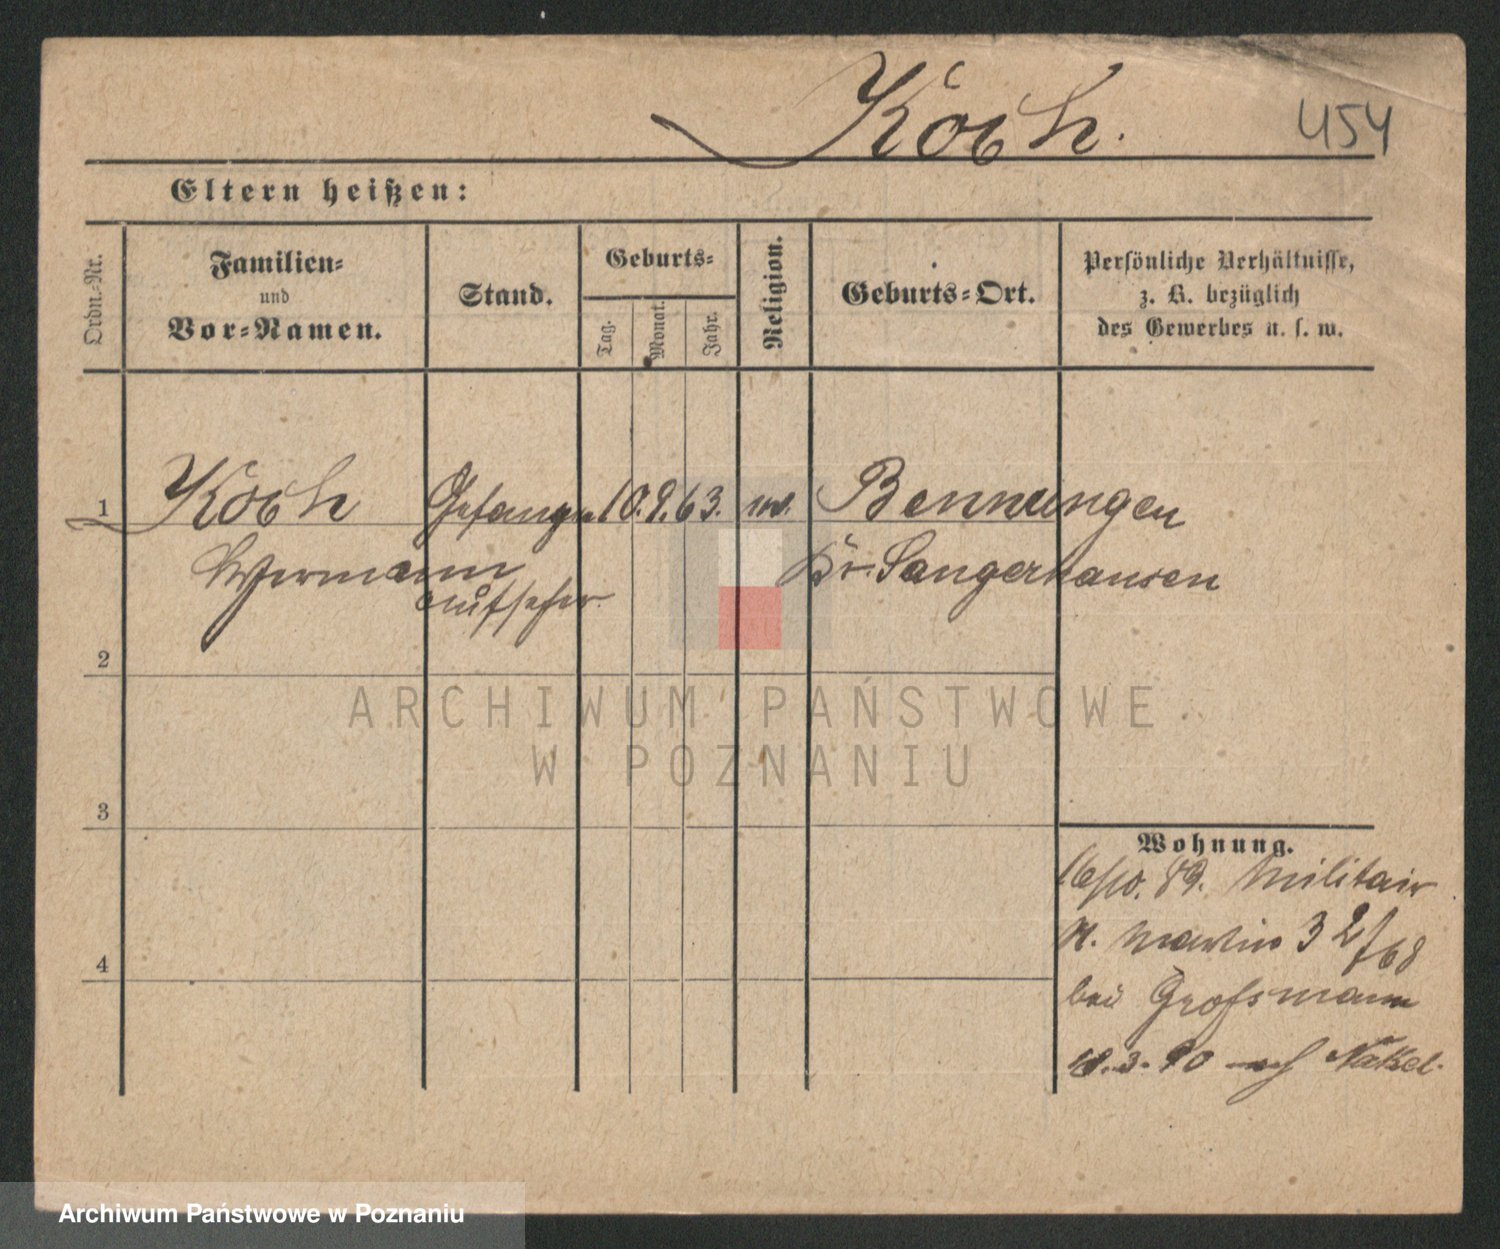 Koch.
454
Eltern heißen:
Ordn.-Nr.
Familien-
und
Vor-Namen.
Stand.
Geburts-
Tag.
Monat.
Jahr.
Religion.
Geburts-Ort.
Persönliche Verhältnisse,
z. B. bezüglich
des Gewerbes u. s. w.
1
Koch Gefangen 10.8.63. Bennungen
Hermann aufseher Kr. Sangerhausen
2
3
4
Wohnung.
16/10. 89. Militair
St. Martin 32/68
bei Grossmann
3. 90 nach Nakel.
ARCHIWUM PAŃSTWOWE
W POZNANIU
Archiwum Państwowe w Poznaniu